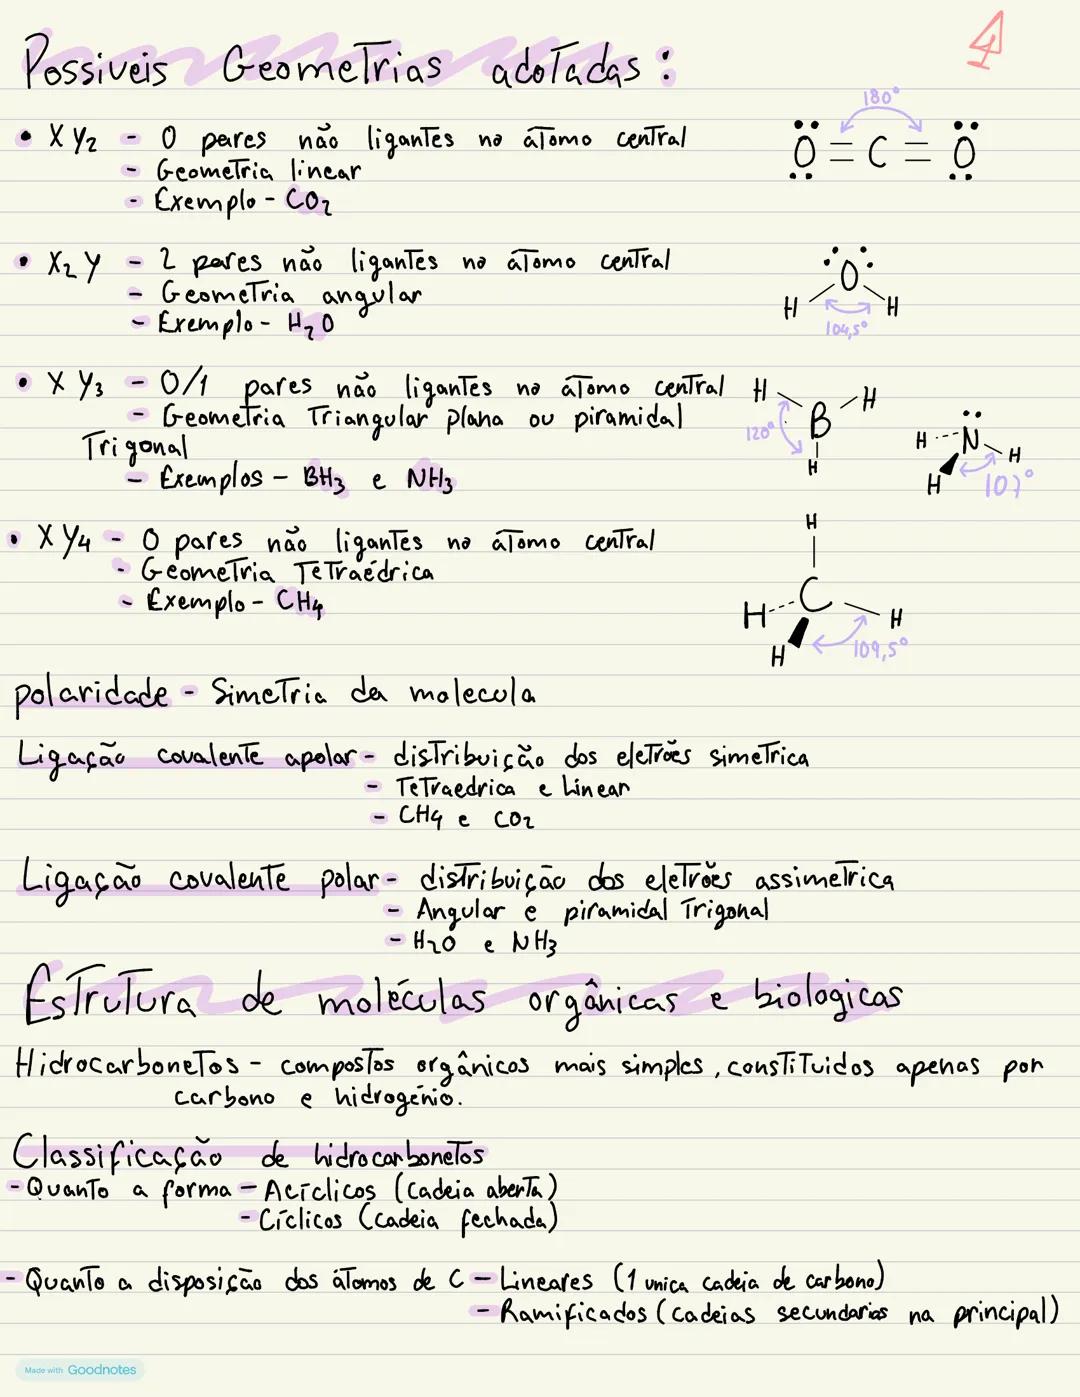 Possiveis Geometrias adotadas:
4
• XY2 - 0 pares não ligantes no átomo central
- Geometria linear
- Exemplo - CO2
180°
O = C = O
• X2Y - 2 pares não ligantes no átomo central
- Geometria angular
- Exemplo - H2O
O
H H
104,5°
• XY3 - 0/1 pares não ligantes no átomo central
- Geometria Triangular plana ou piramidal
Trigonal
- Exemplos - BH3 e NH3
H H
B
120°
H
H N H
H 107°
• XY4 - 0 pares não ligantes no átomo central
- Geometria Tetraédrica
- Exemplo - CH4
H
C
H H
H 109,5°
polaridade - Simetria da molecula
Ligação covalente apolar - distribuição dos eletrões simetrica
- Tetraedrica e Linear
- CH4 e CO2
Ligação covalente polar - distribuição dos eletrões assimetrica
- Angular e piramidal Trigonal
- H2O e NH3
Estrutura de moléculas orgânicas e biologicas
Hidrocarbonetos - compostos orgânicos mais simples, constituidos apenas por
carbono e hidrogénio.
Classificação de hidrocarbonetos
- Quanto a forma - Acíclicos (cadeia aberta)
- Cíclicos (cadeia fechada)
- Quanto a disposição dos átomos de C - Lineares (1 unica cadeia de carbono)
- Ramificados (cadeias secundarias na principal)
Made with Goodnotes